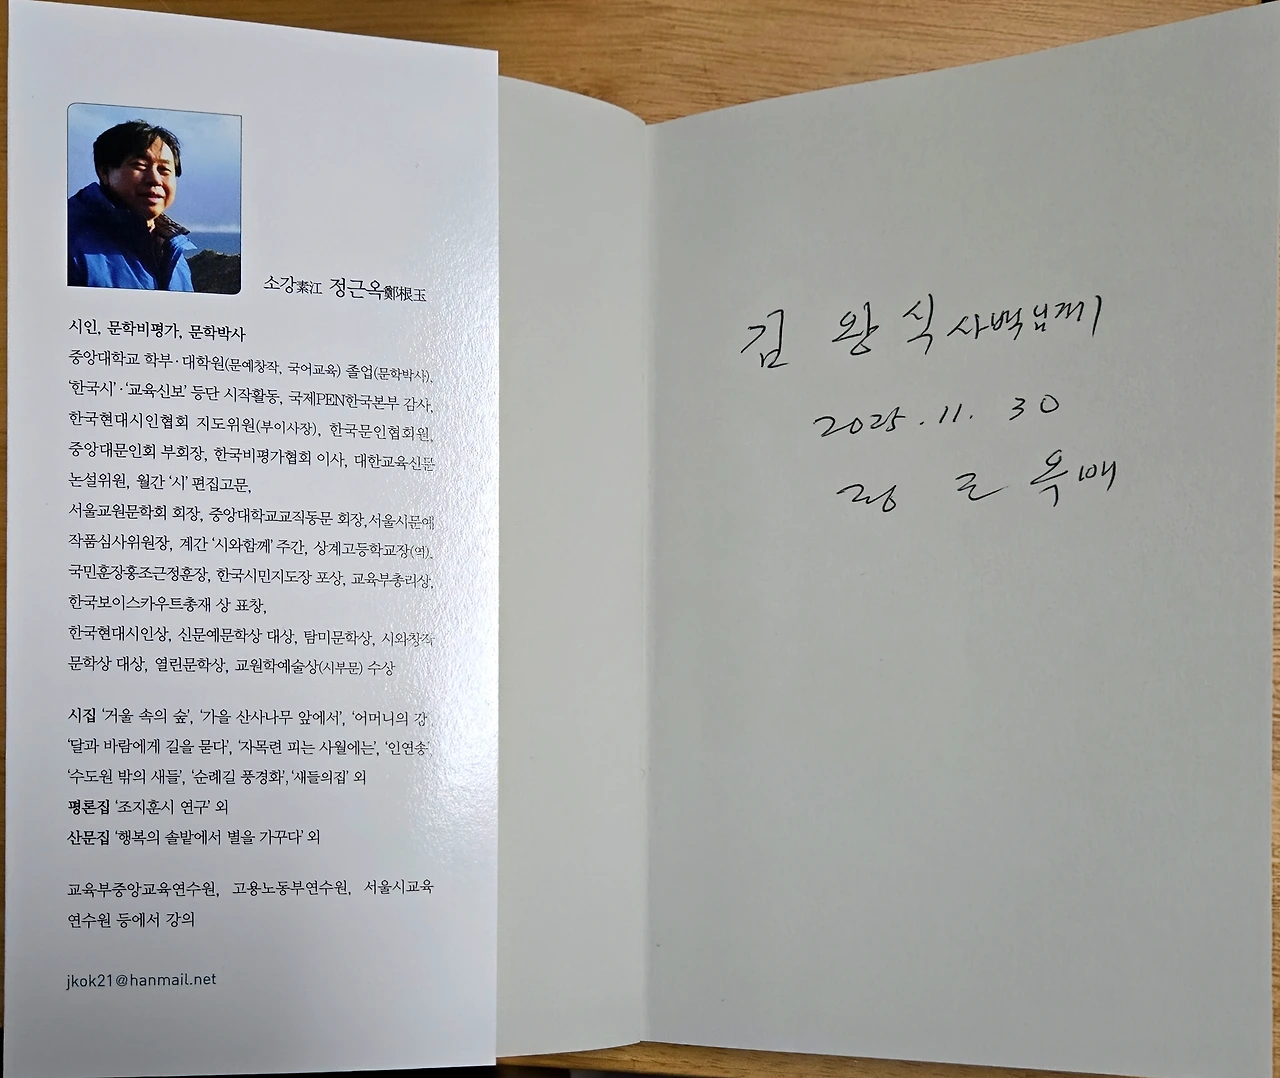 소강素江 정근옥鄭根玉
시인, 문학비평가, 문학박사
중앙대학교 학부·대학원(문예창작, 국어교육) 졸업(문학박사),
‘한국시’·‘교육신보’ 등단 시작활동, 국제PEN한국본부 감사,
한국현대시인협회 지도위원(부이사장), 한국문인협회원,
중앙대문인회 부회장, 한국비평가협회 이사, 대한교육신문
논설위원, 월간 ‘시’ 편집고문,
서울교원문학회 회장, 중앙대학교교직동문 회장, 서울시문예
작품심사위원장, 계간 ‘시와함께’ 주간, 상계고등학교장(역),
국민훈장홍조근정훈장, 한국시민지도장 포상, 교육부총리상,
한국보이스카우트총재 상 표창,
한국현대시인상, 신문예문학상 대상, 탐미문학상, 시와창작
문학상 대상, 열린문학상, 교원학예술상(시부문) 수상
시집 ‘거울 속의 숲’, ‘가을 산사나무 앞에서’, ‘어머니의 강’,
‘달과 바람에게 길을 묻다’, ‘자목련 피는 사월에는’, ‘인연송’,
‘수도원 밖의 새들’, ‘순례길 풍경화’, ‘새들의집’ 외
평론집 ‘조지훈시 연구’ 외
산문집 ‘행복의 솔밭에서 별을 가꾸다’ 외
교육부중앙교육연수원, 고용노동부연수원, 서울시교육
연수원 등에서 강의
jkok21@hanmail.net
김 왕 식 사백님께
2025. 11. 30
정 근 옥